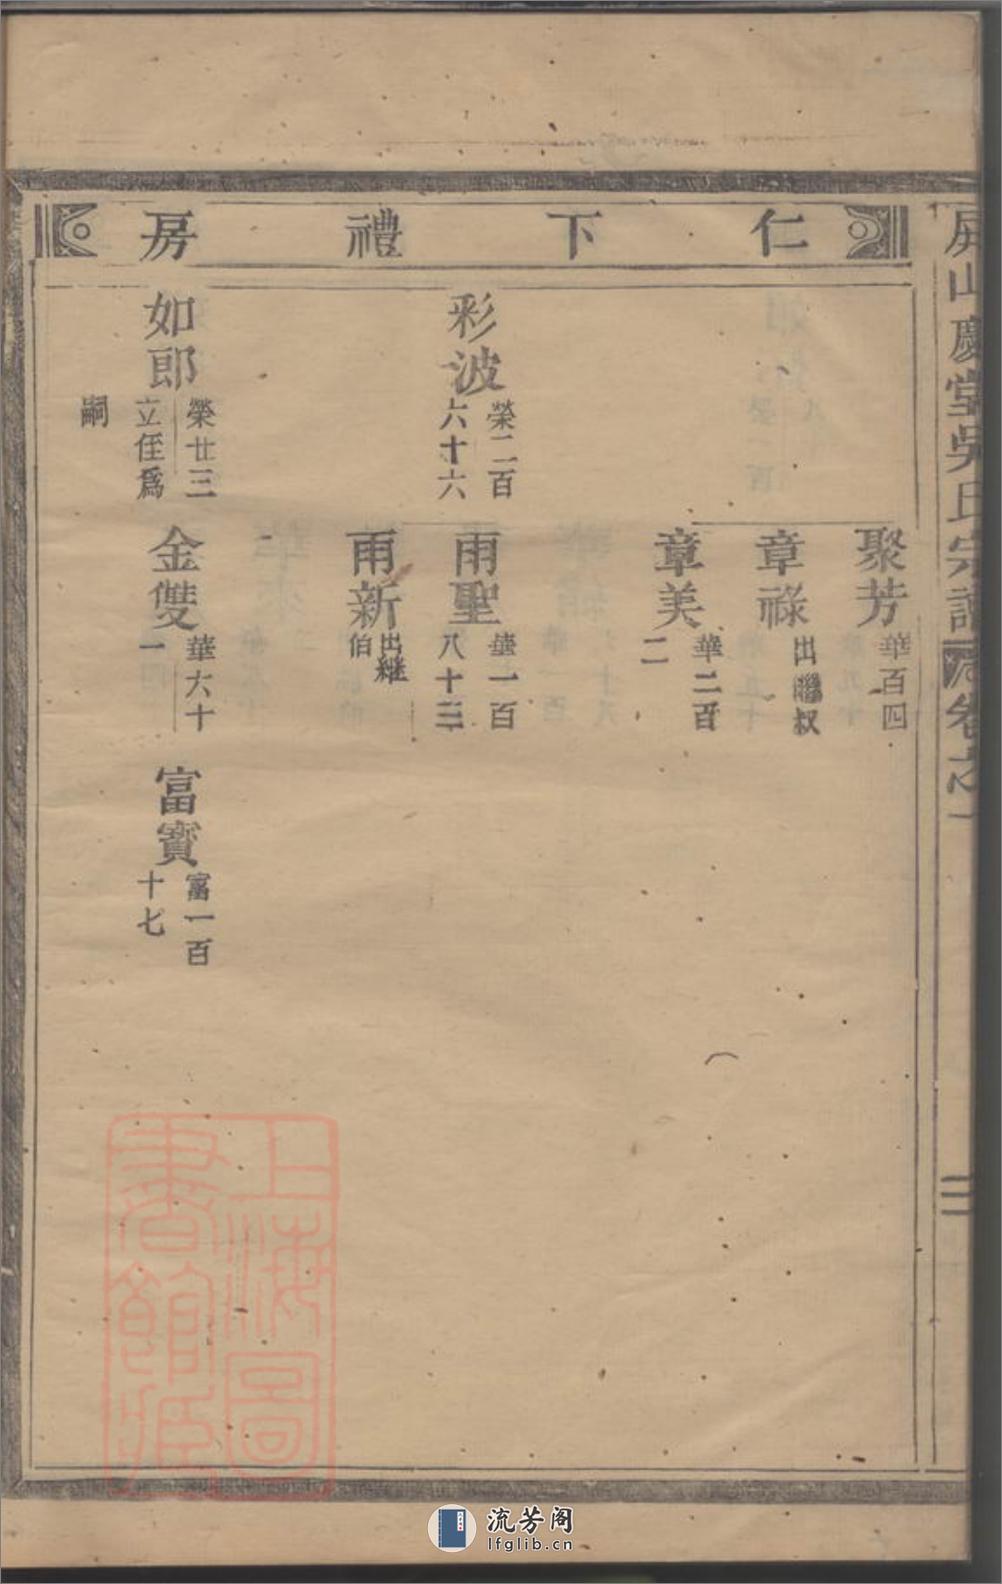 屏山慶堂吳氏宗譜 卷之一
二
仁下禮房
聚芳
華百四
章祿
出繼叔
章美
華二百
二
彩波
榮二百
六十六
雨聖
華一百
八十三
雨新
出継
伯
如郎
榮廿三
立侄爲
嗣
金雙
華六十
一
富寶
富一百
十七
上海圖
書館藏
流芳阁
lfglib.cn